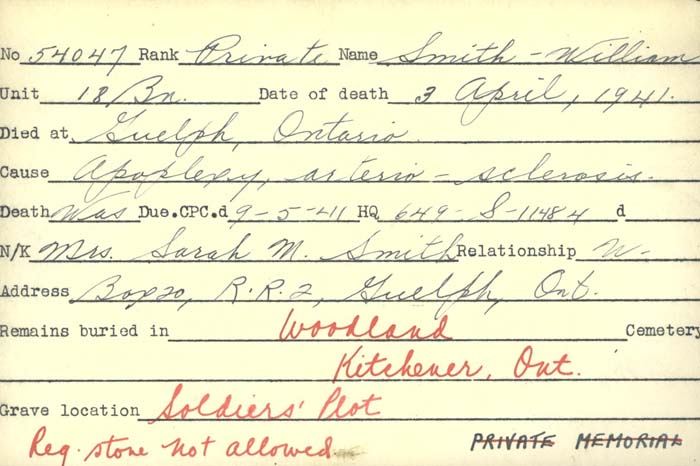 No 54047 Rank Private Name Smith - William
Unit 18 Bn. Date of death 3 April, 1941.
Died at Guelph, Ontario.
Cause Apoplexy, arterio - sclerosis.
Death Was Due.CPC.d 9-5-41 HQ 649-S-11484 d
N/K Mrs. Sarah M. Smith Relationship W.
Address Box 20, R.R.2, Guelph, Ont.
Remains buried in Woodland Cemetery
Kitchener, Ont.
Grave location Soldiers' Plot
Reg. stone not allowed. PRIVATE MEMORIAL